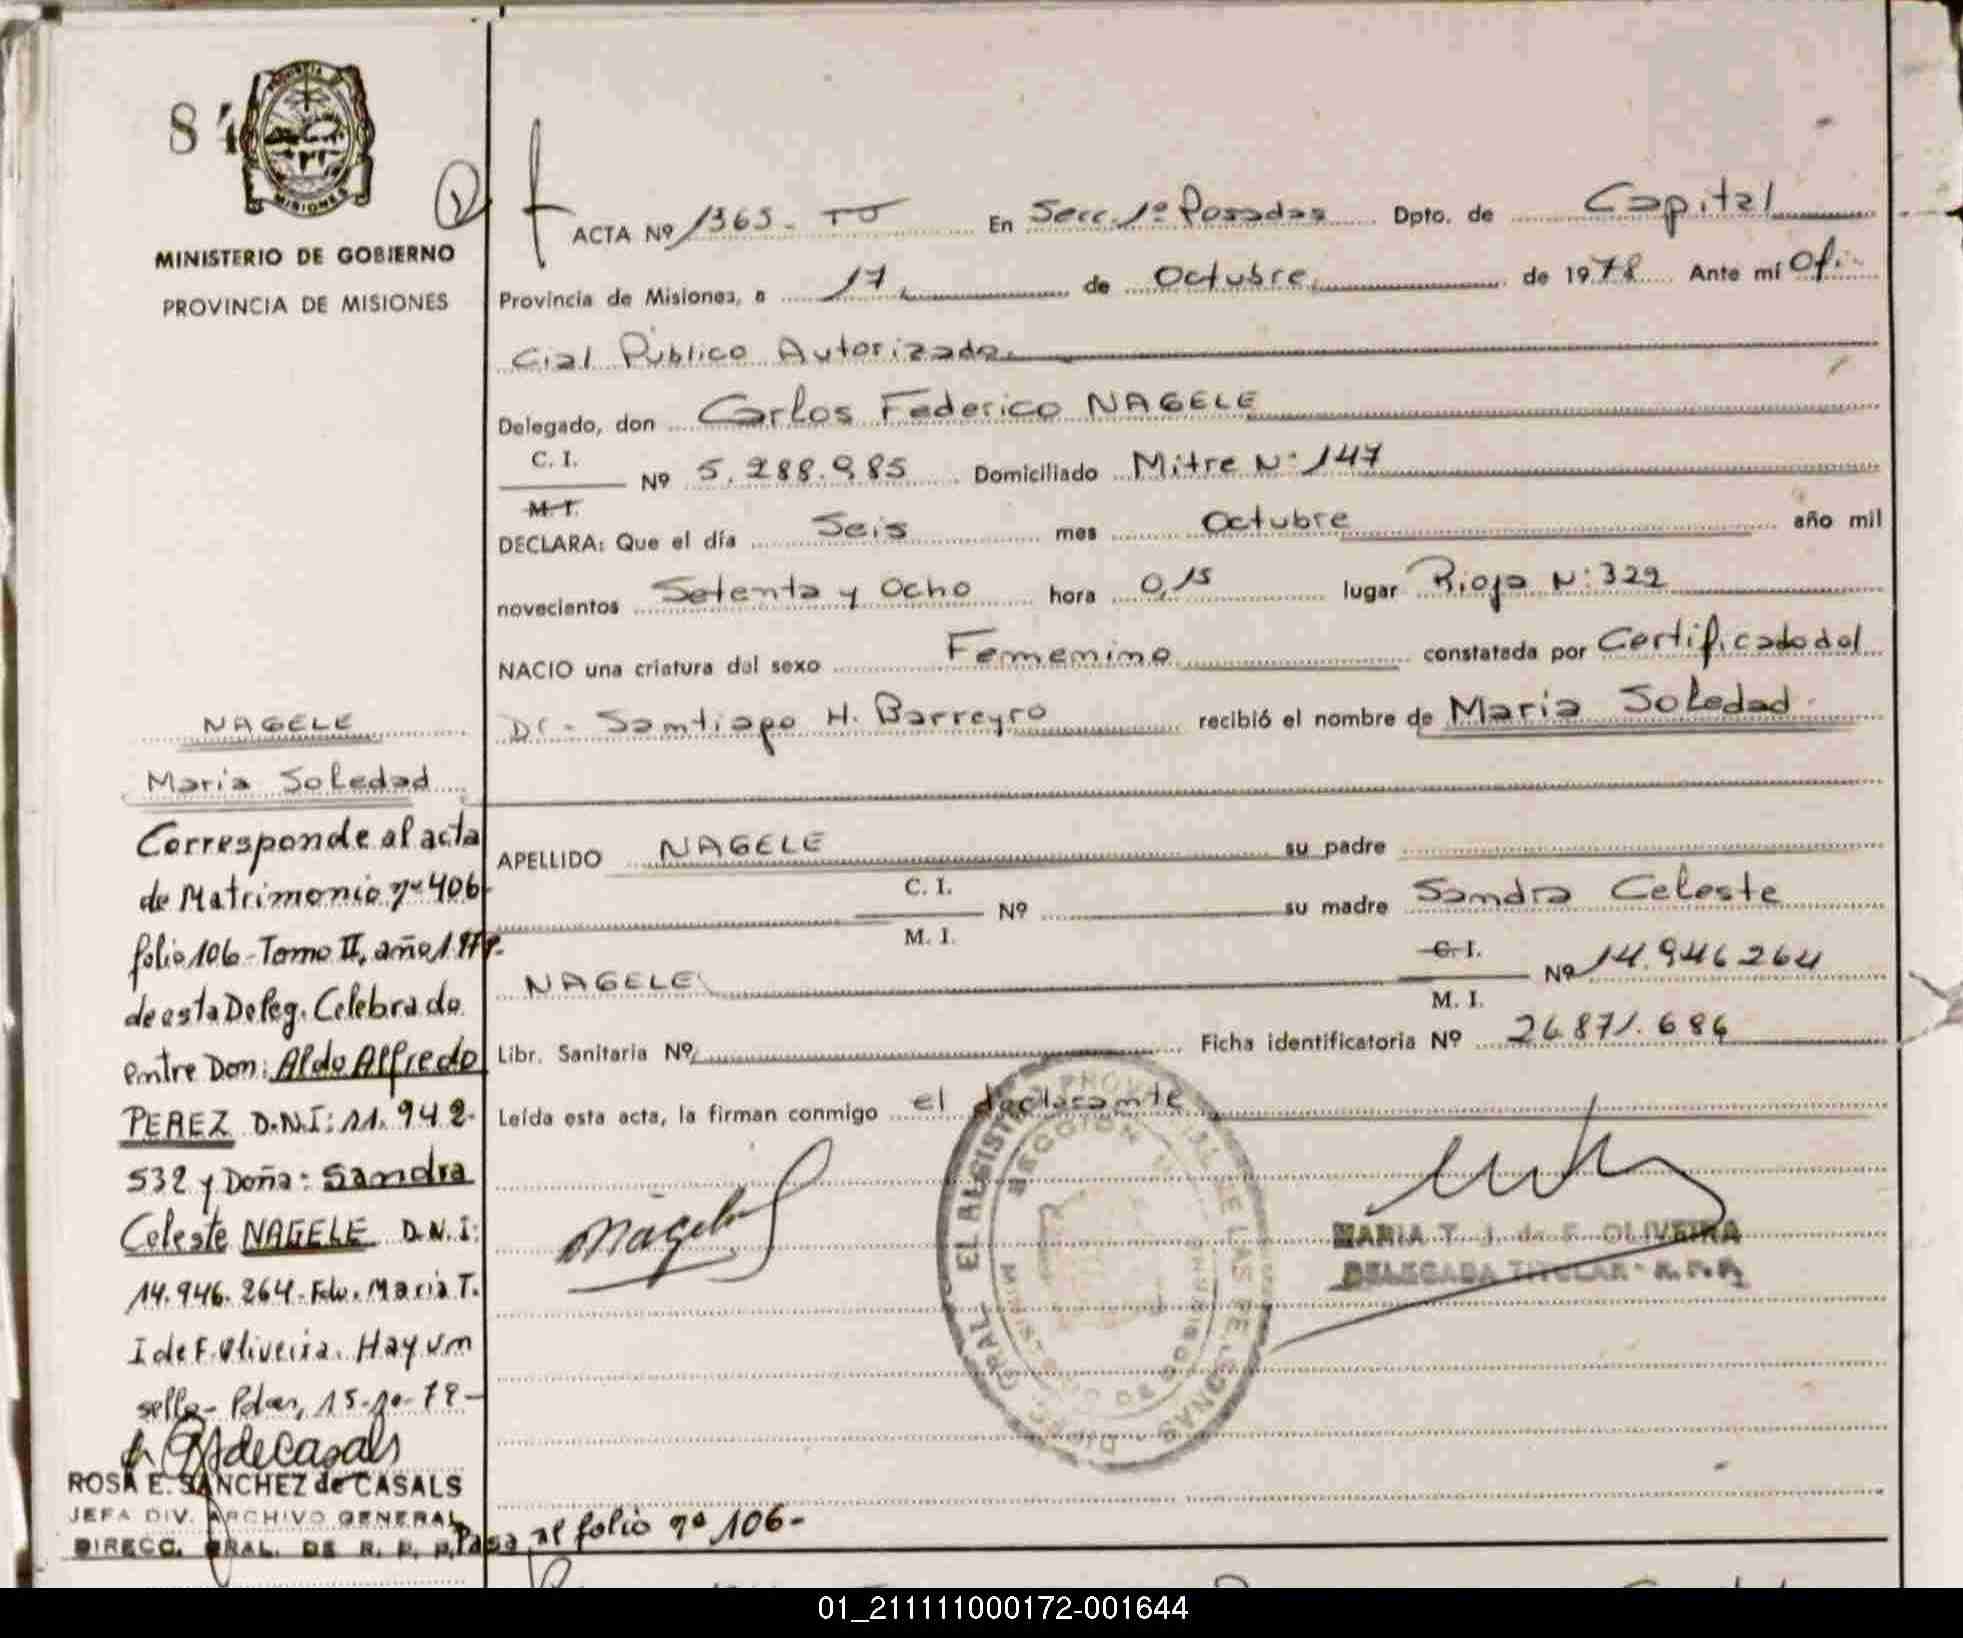 84
PROVINCIA DE
MISIONES
MINISTERIO DE GOBIERNO
PROVINCIA DE MISIONES
ACTA Nº 1365 - TU En Secc. 1º Posadas Dpto. de Capital
Provincia de Misiones, a 17 de Octubre de 1978 Ante mí Ofi-
cial Público Autorizado
Delegado, don Carlos Federico NAGELE
C. I.
Nº 5.288.985 Domiciliado Mitre Nº 147
M. I.
DECLARA: Que el día Seis mes Octubre año mil
novecientos Setenta y Ocho hora 0,15 lugar Rioja Nº 322
NACIO una criatura del sexo Femenino constatada por Certificado del
Dr. Santiago H. Barreyro recibió el nombre de María Soledad
APELLIDO NAGELE su padre
C. I.
Nº su madre Sandra Celeste
M. I.
C. I.
NAGELE Nº 14.946.264
M. I.
Libr. Sanitaria Nº Ficha identificatoria Nº 26.871.686
Leída esta acta, la firman conmigo el declarante
Nagele
MARIA T. J. de F. OLIVEIRA
DELEGADA TITULAR - R. P. P.
NAGELE
María Soledad
Corresponde al acta
de Matrimonio nº 406
folio 106 - Tomo II, año 1978.
de esta Deleg. Celebrado
entre Don: Aldo Alfredo
PEREZ D.N.I: 11.942.
532 y Doña: Sandra
Celeste NAGELE D.N.I:
14.946.264. Fdo. Maria T.
I de F. Oliveira. Hay un
sello - Pdas, 15-10-79 -
ROSA E. SANCHEZ de CASALS
JEFA DIV. ARCHIVO GENERAL
DIRECC. GRAL. DE R. P. P.
Pasa al folio nº 106 -
01_211111000172-001644